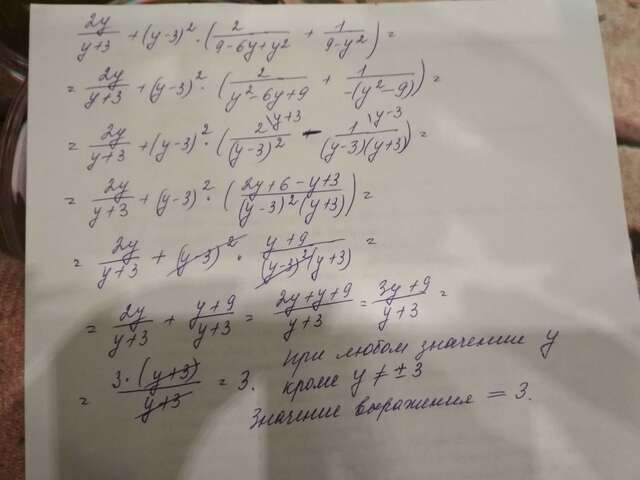 2y/(y+3) + (y-3)² · (2/(9-6y+y²) + 1/(9-y²)) =
= 2y/(y+3) + (y-3)² · (2/(y²-6y+9) + 1/(-(y²-9))) =
= 2y/(y+3) + (y-3)² · (2\y+3/(y-3)² - 1\y-3/((y-3)(y+3))) =
= 2y/(y+3) + (y-3)² · ((2y+6-y+3)/((y-3)²(y+3))) =
= 2y/(y+3) + (y-3)² · (y+9)/((y-3)²(y+3)) =
= 2y/(y+3) + (y+9)/(y+3) = (2y+y+9)/(y+3) = (3y+9)/(y+3) =
= 3·(y+3)/(y+3) = 3.
При любом значении y
кроме y ≠ ±3
Значение выражения = 3.